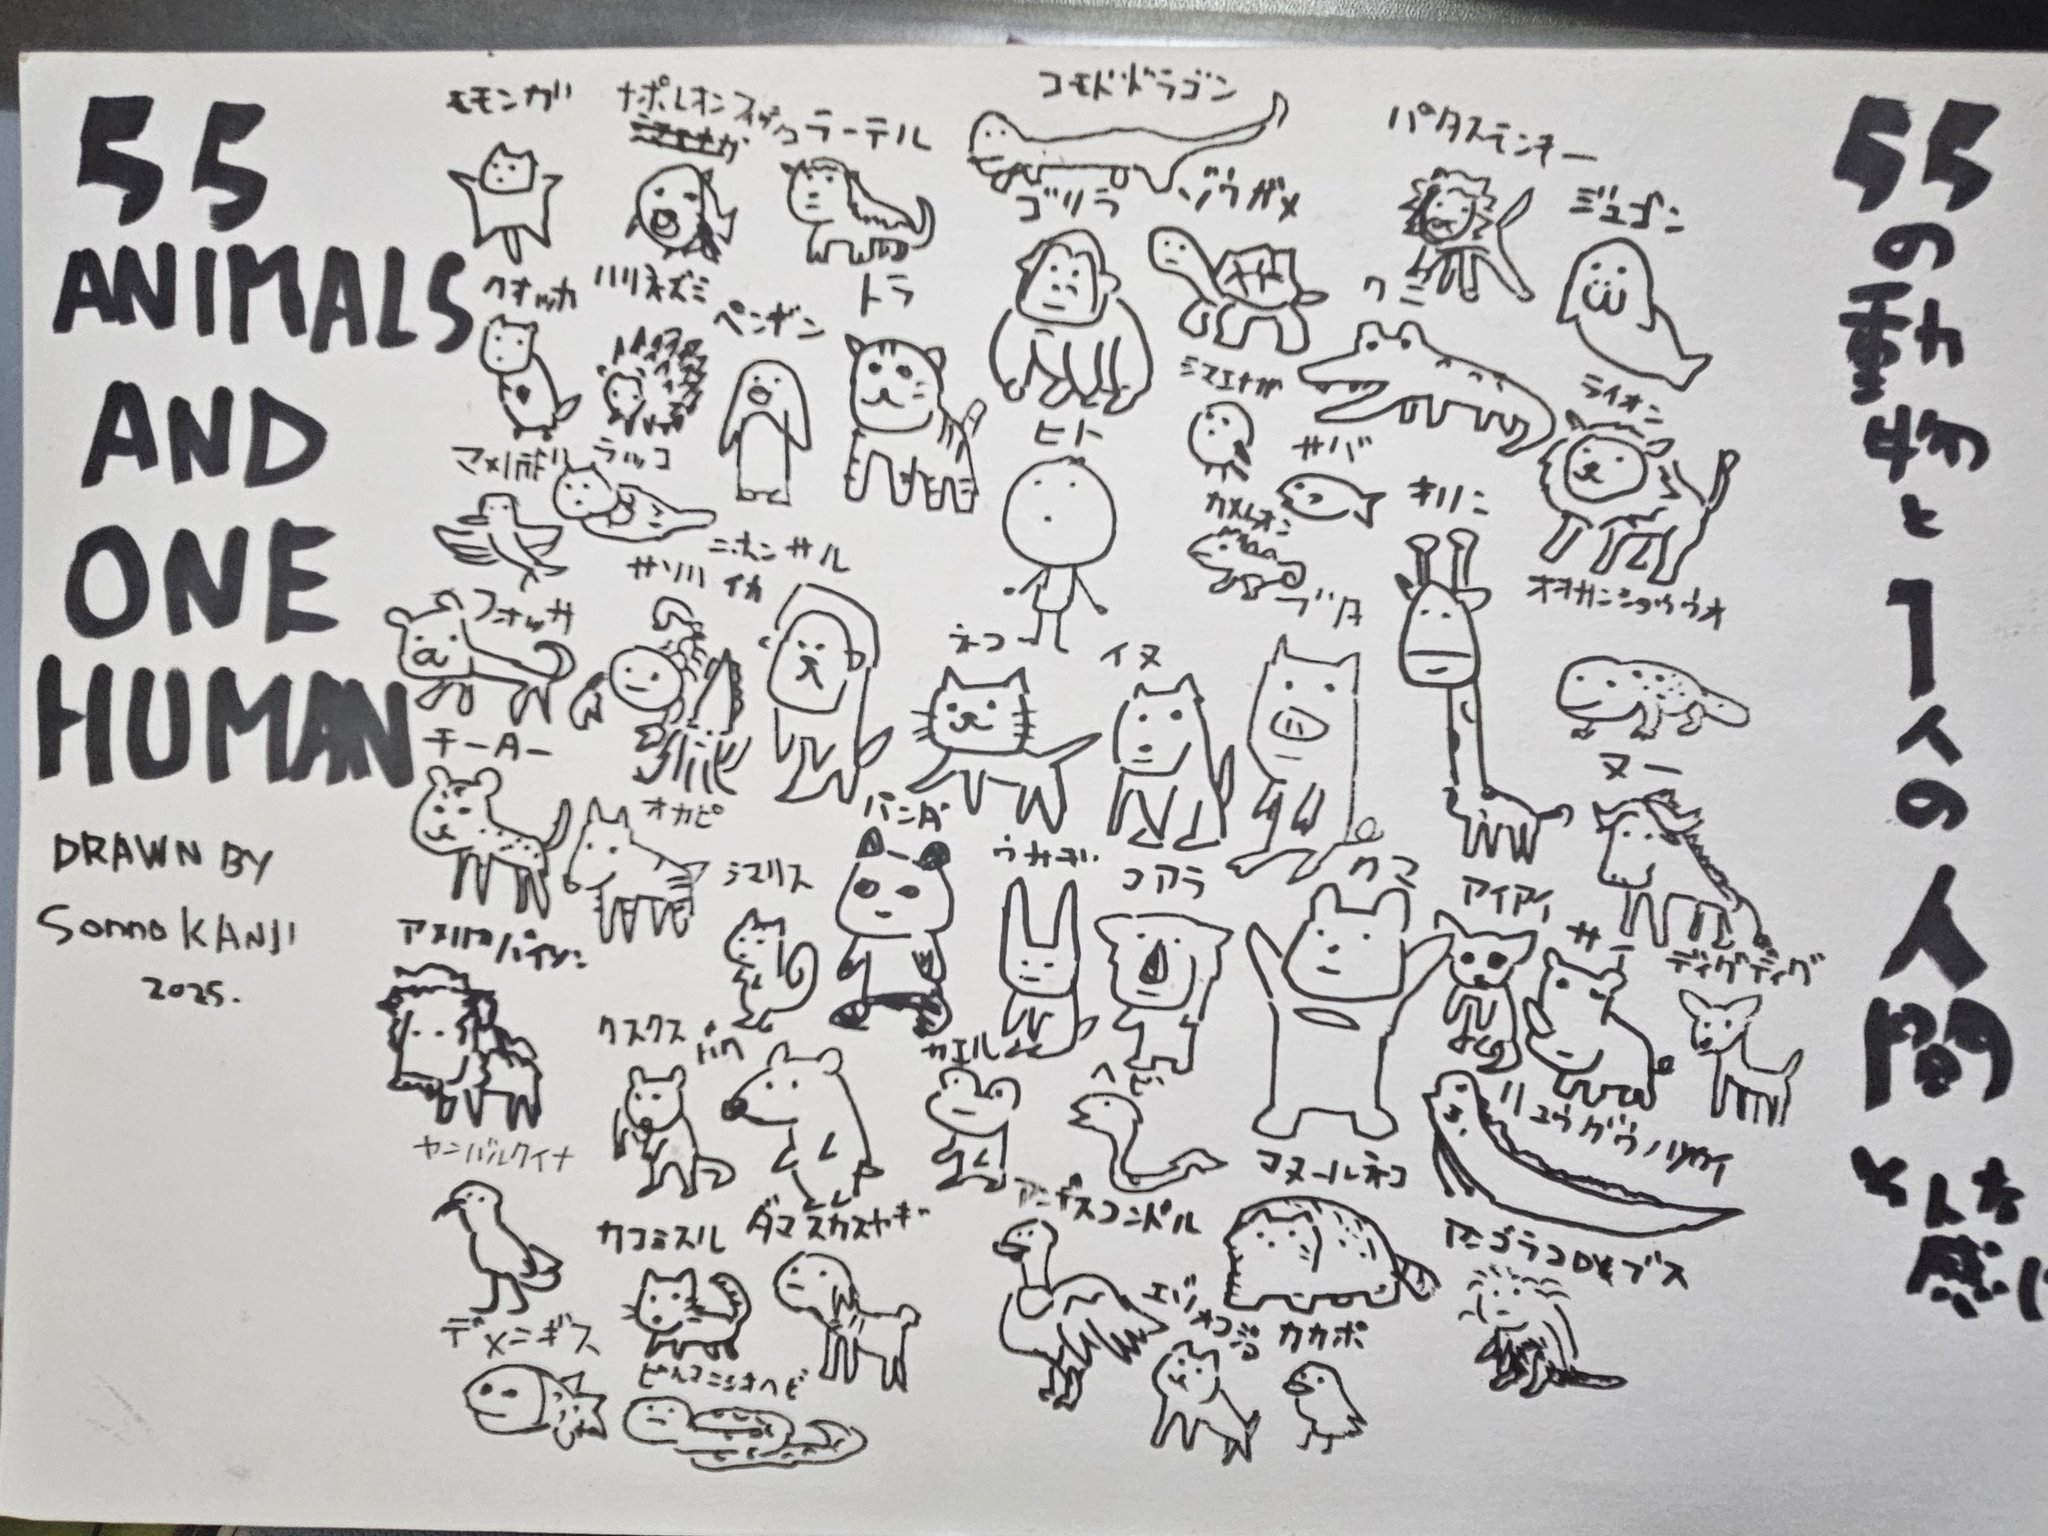 55
ANIMALS
AND
ONE
HUMAN
DRAWN BY
Sonno KANJI
2025.
モモンガ
ナポレオンフィッシュ
ラーテル
コモドドラゴン
パタスモンキー
ゴリラ
ゾウガメ
ジュゴン
クオッカ
ハリネズミ
ペンギン
トラ
ワニ
シマエナガ
ライオン
ヒト
サバ
マメルリハ
ラッコ
カメレオン
キリン
ニホンザル
サソリ
イカ
ブタ
オオサンショウウオ
フォッサ
ネコ
イヌ
チーター
オカピ
パンダ
ヌー
シマリス
ウサギ
コアラ
クマ
アイアイ
サイ
ディクディク
アメリカバイソン
クスクス
バク
カエル
ヘビ
リュウグウノツカイ
ヤンバルクイナ
マヌールネコ
カコミスル
ダマスカスヤギ
アンデスコンドル
アンゴラコロブス
エゾオコジョ
カカポ
デメニギス
ビルマニシキヘビ
55の動物と1人の人間
そんな感じ